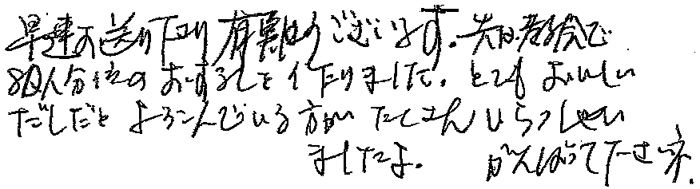 早速お送り下さり有難うございます。先日老人会で
80人分位のおすましを作りました。とてもおいしい
だしだとよろこんでいる方がたくさんいらっしゃい
ましたよ。 がんばって下さいネ.